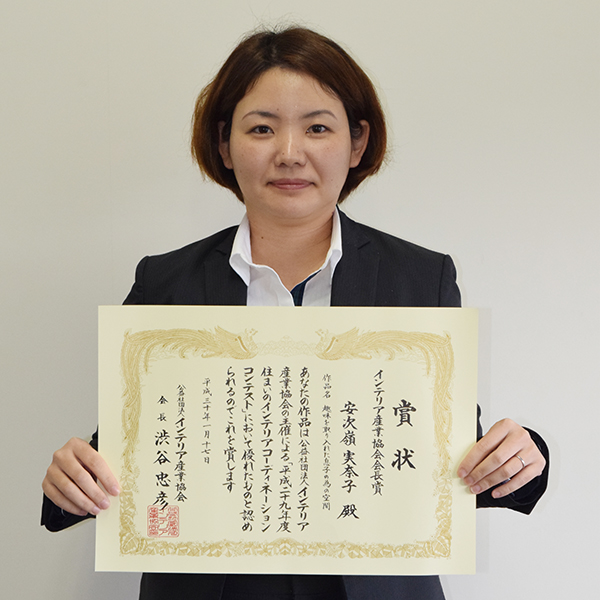 賞状
インテリア産業協会会長賞
作品名 趣味を取り入れた息子の為の空間
安次嶺 実奈子 殿
あなたの作品は公益社団法人インテリア
産業協会の主催による「平成二十九年度
住まいのインテリアコーディネーション
コンテスト」において優れたものと認め
られるのでこれを賞します
平成三十年一月十七日
公益社団法人インテリア産業協会
会長 渋谷 忠彦